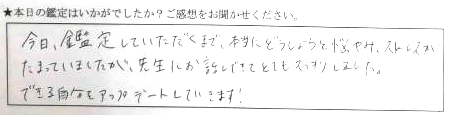 ★本日の鑑定はいかがでしたか？ご感想をお聞かせください。
今日、鑑定していただくまで、本当にどうしようと悩やみ、ストレスが
たまっていましたが、先生にお話しできてとてもスッキリしました。
できる自分をアップデートしていきます！